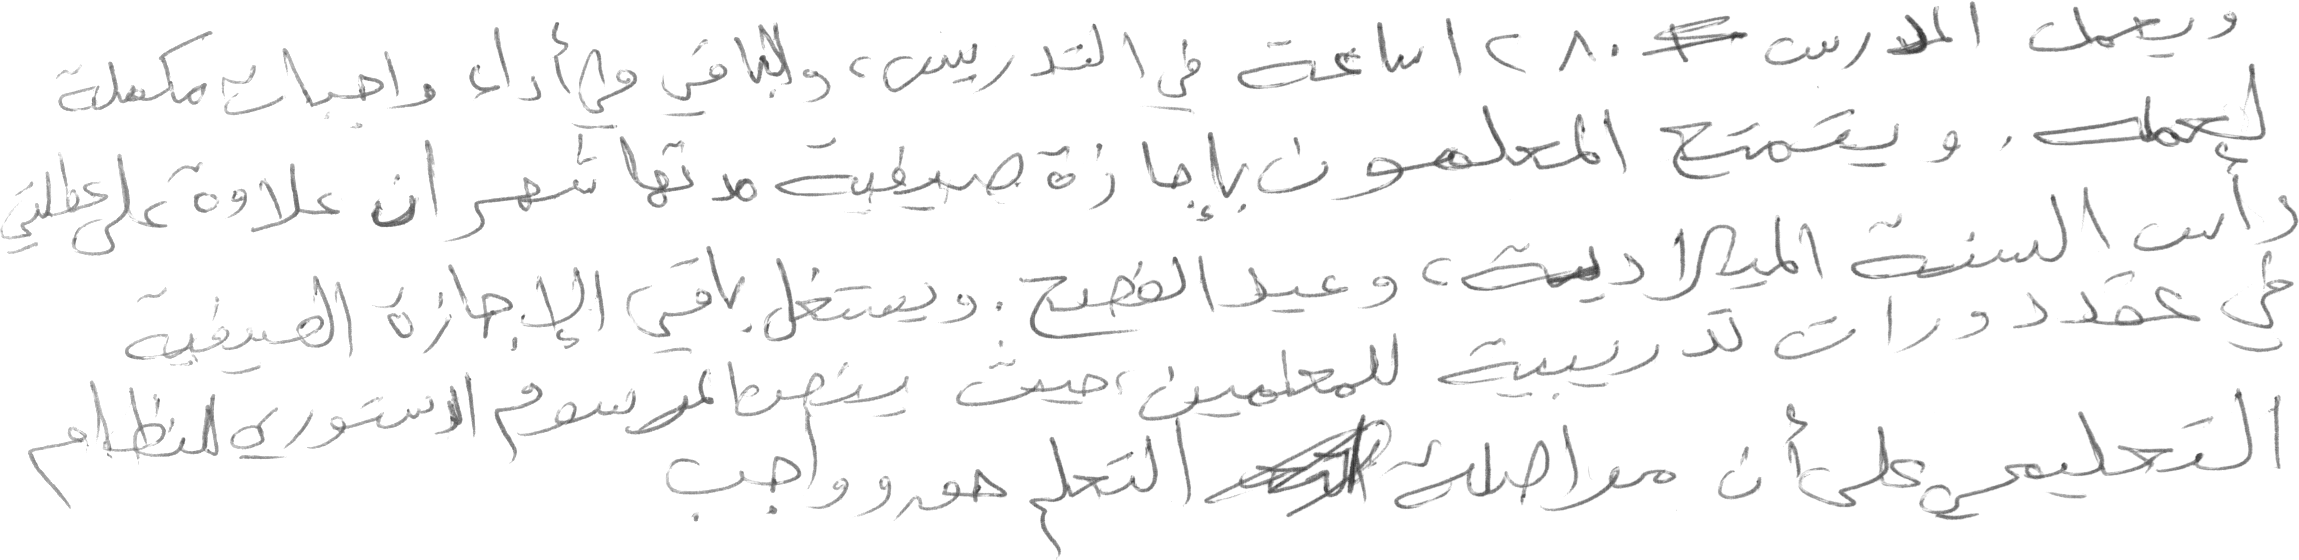 ويعمل المدرس ١٢٨٠ ساعة في التدريس، والباقي في أداء واجبات مكملة
لعمله. ويتمتع المعلمون بإجازة صيفية مدتها شهران علاوة على عطلتي
رأس السنة الميلادية، وعيد الفصح. ويستغل باقي الإجازة الصيفية
في عقد دورات تدريبية للمعلمين، حيث ينص المرسوم الدستوري للنظام
التعليمي على أن مواصلة التعلم حق وواجب